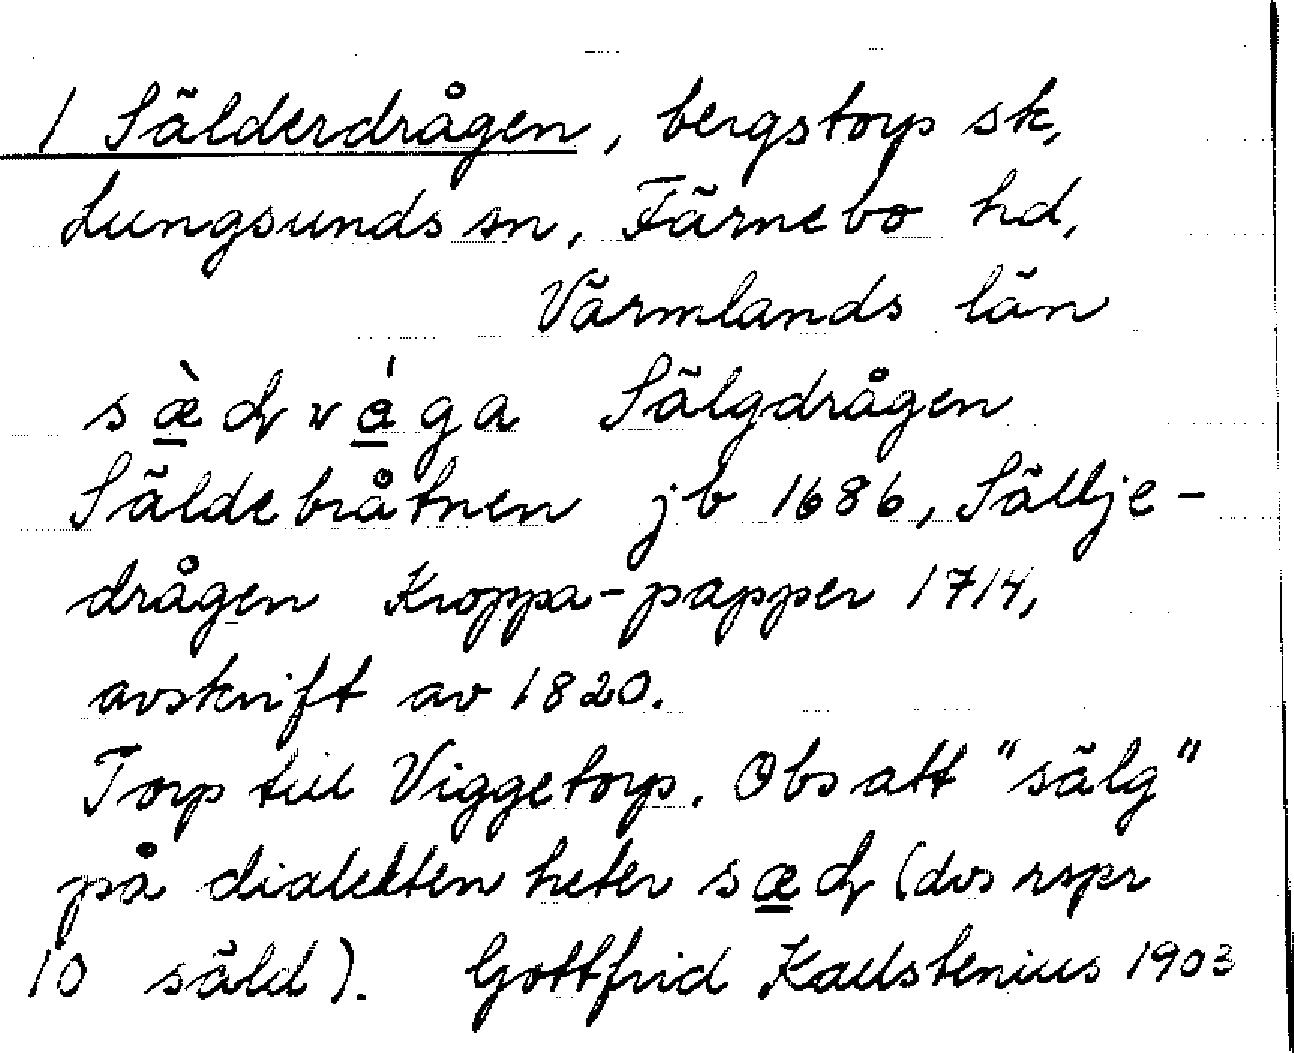 1 Sälderdrågen, bergstorp sk,
Lungsunds sn, Färnebo hd,
Värmlands län
sæ̀ɖrágа Sälgdrågen
Säldebråtnen jb 1686, Sällje-
drågen Kroppa-papper 1714,
avskrift av 1820.
Torp till Viggetorp. Obs att "sälg"
på dialekten heter sæɖ (dvs rspr
10 säld). Gottfrid Kallstenius 1903